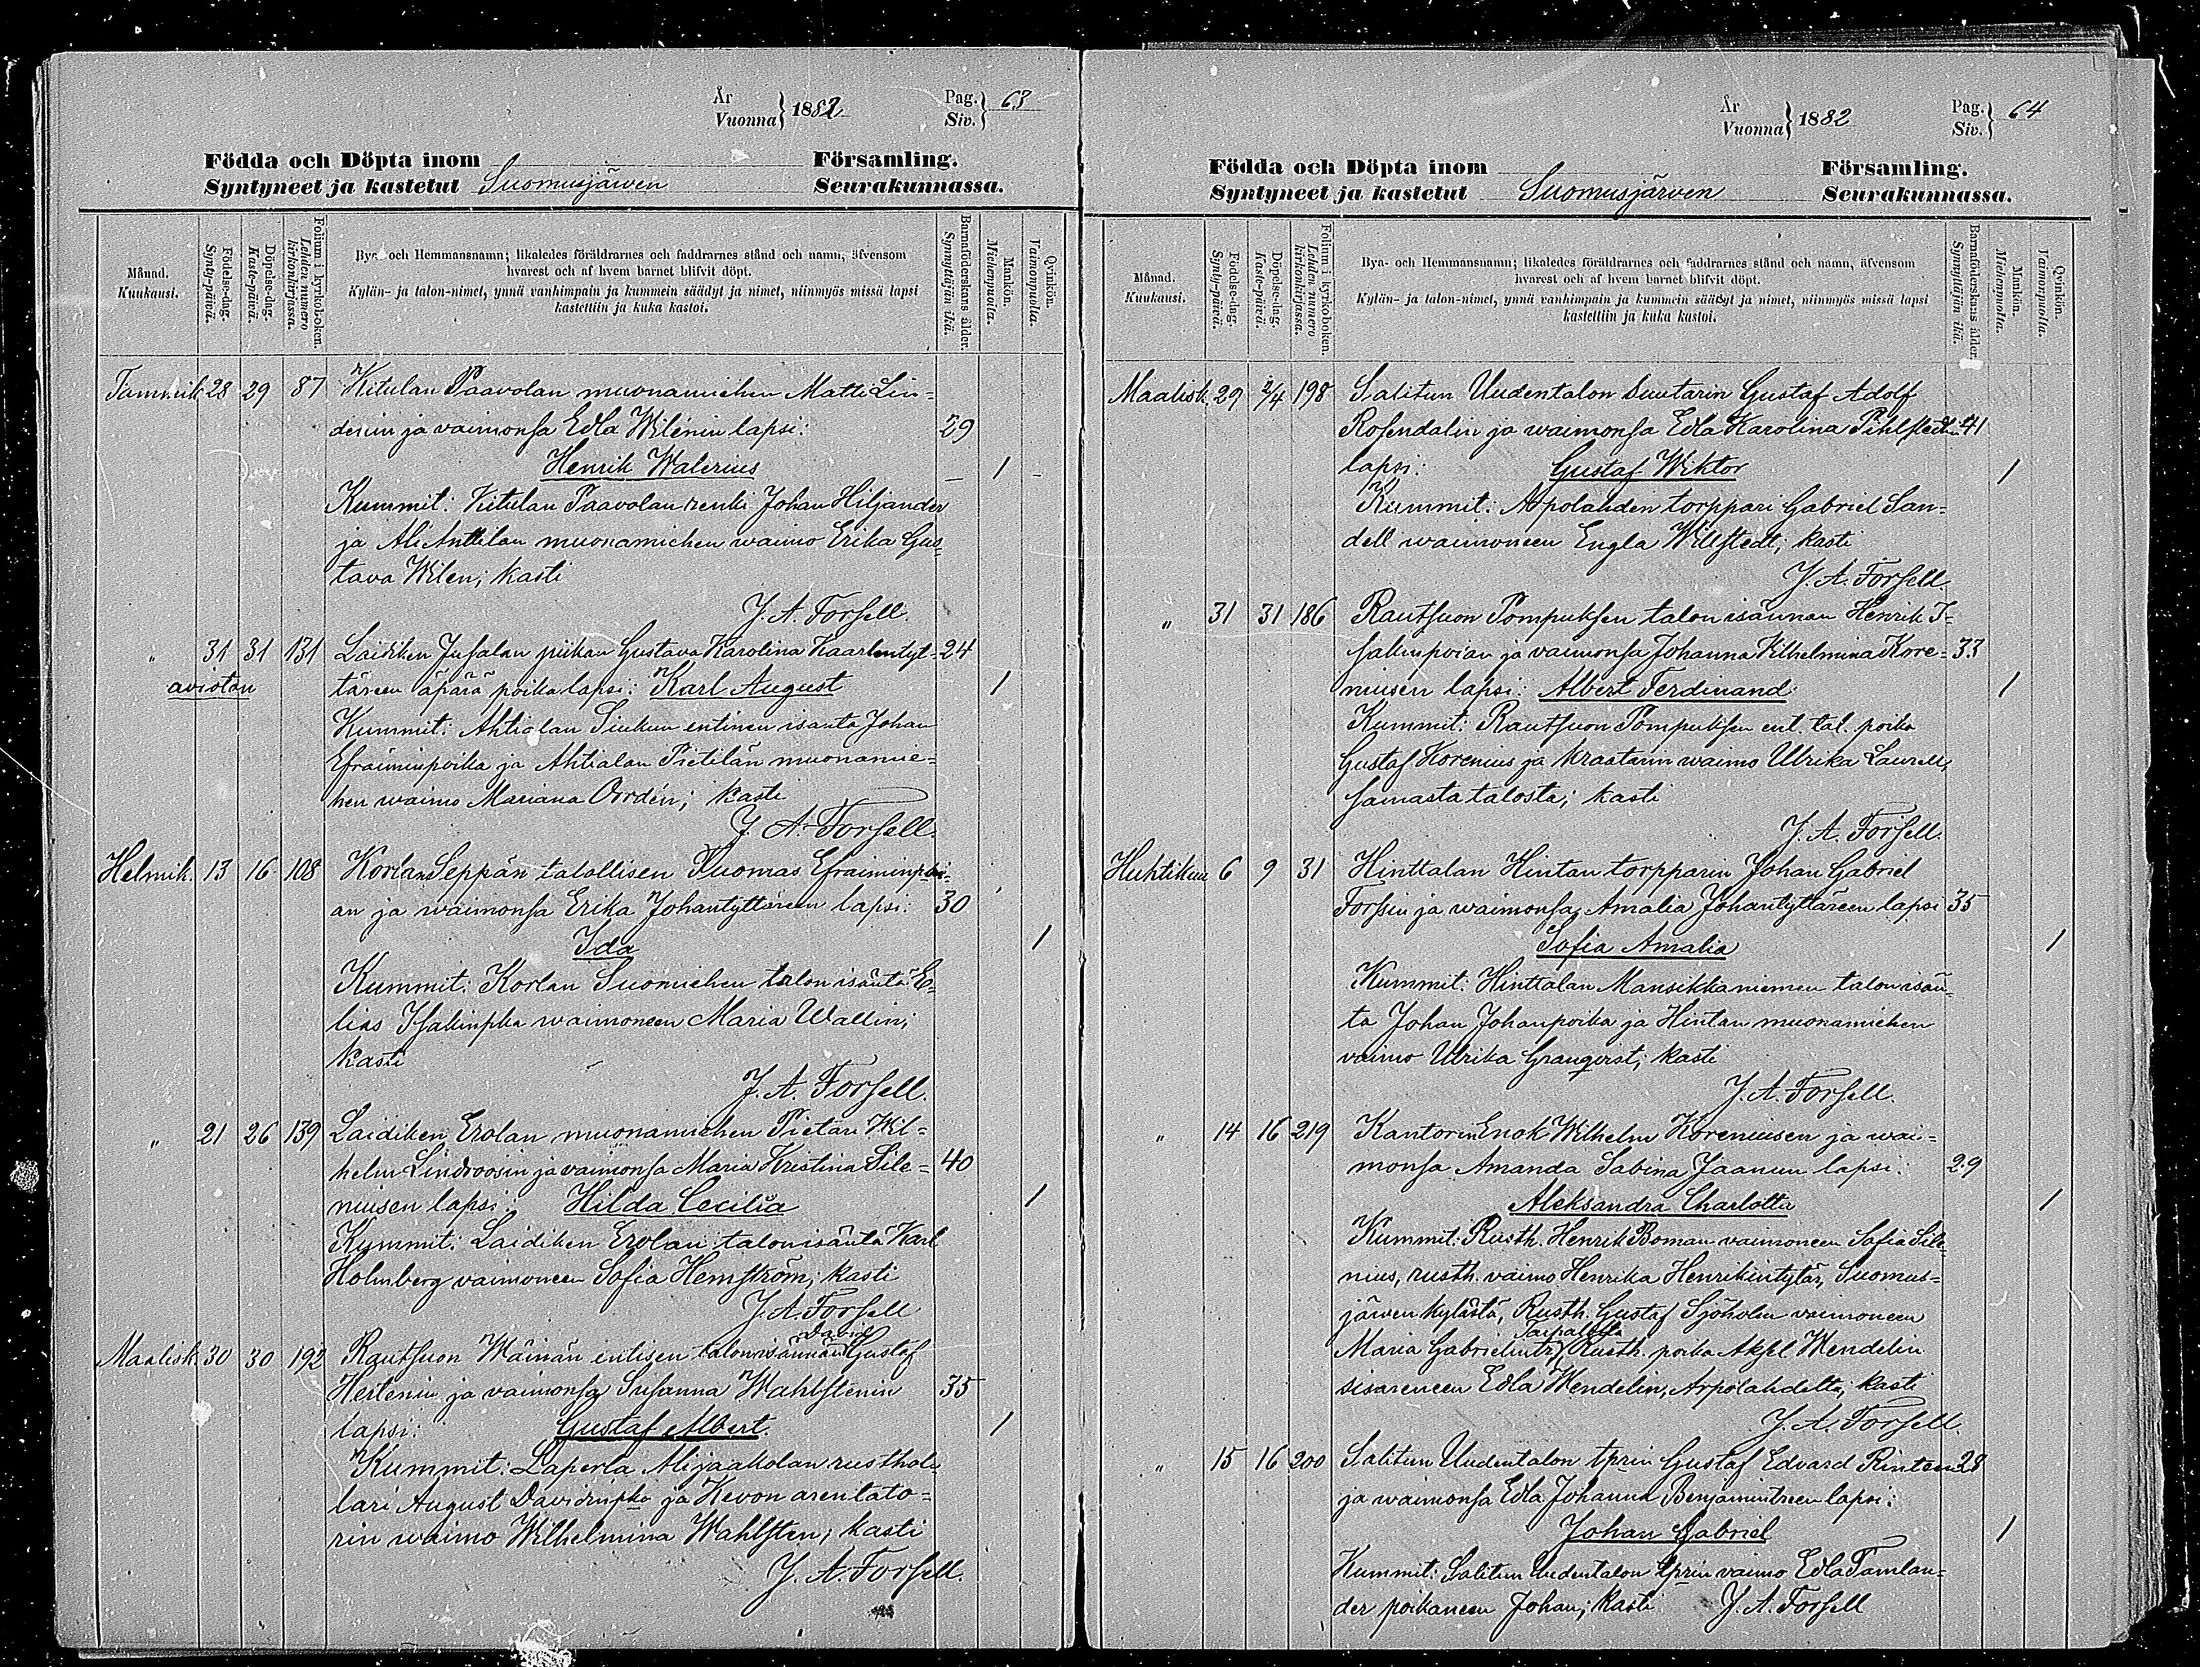 År
Vuonna } 1882
Pag.
Siv. } 63
Födda och Döpta inom Församling.
Syntyneet ja kastetut Suomusjärven Seurakunnassa.
Månad.
Kuukausi.
Födelse-dag.
Synty-päivä.
Döpelse-dag.
Kaste-päivä.
Folium i kyrkoboken.
Lehden numero kirkonkirjassa.
Bya- och Hemmansnamn; likaledes föräldrarnes och faddrarnes stånd och namn, äfvensom
hvarest och af hvem barnet blifvit döpt.
Kylän- ja talon-nimet, ynnä vanhimpain ja kummein säädyt ja nimet, niinmyös missä lapsi
kastettiin ja kuka kastoi.
Barnaföderskans ålder.
Synnyttäjän ikä.
Mankön.
Miehenpuolta.
Qvinkön.
Vaimonpuolta.
Tammik 28 29 87 Kitulan Paavolan muonamiehen Matti Lin-
denin ja vaimonsa Edla Wilénin lapsi: 29
Henrik Walerius 1
Kummit: Kitulan Paavolan renki Johan Hiljander
ja Ali Anttilan muonamiehen waimo Erika Gus-
tava Wilen; kasti
J. A. Forsell.
" 31 31 131 Laidiken Jusalan piikan Gustava Karolina Kaarlentyt- 24
avioton täreen äpärä poikalapsi: Karl August 1
Kummit: Ahtialan Siukun entinen isäntä Johan
Efraiminpoika ja Ahtialan Pietilän muonamie-
hen waimo Mariana Orrdén; kasti
J. A. Forsell.
Helmik. 13 16 108 Korlan Seppän talollisen Tuomas Efraiminpoi-
an ja waimonsa Erika Johantyttären lapsi: 30
Ida 1
Kummit: Korlan Suomiehen talon isäntä E-
lias Isakinpka waimoneen Maria Wallin;
kasti
J. A. Forsell.
" 21 26 139 Laidiken Erolan muonamiehen Pietari Wil-
helm Lindroosin ja vaimonsa Maria Kristina Sile- 40
niusen lapsi: Hilda Cecilia 1
Kummit: Laidiken Erolan talonisäntä Karl
Holmberg vaimoneen Sofia Hemström; kasti
J. A. Forsell
David
Maalisk 30 30 192 Rautsuon Wäinän entisen talonisännän Gustaf
Hertenin ja vaimonsa Susanna Wahlsténin 35
lapsi: Gustaf Albert. 1
Kummit: Laperla Alijaakolan rusthol-
lari August Davidinpka ja Kevon arentato-
rin waimo Wilhelmina Wahlsten; kasti
J. A. Forsell.
År
Vuonna } 1882
Pag.
Siv. } 64
Födda och Döpta inom Församling.
Syntyneet ja kastetut Suomusjärven Seurakunnassa.
Månad.
Kuukausi.
Födelse-dag.
Synty-päivä.
Döpelse-dag.
Kaste-päivä.
Folium i kyrkoboken.
Lehden numero kirkonkirjassa.
Bya- och Hemmansnamn; likaledes föräldrarnes och faddrarnes stånd och namn, äfvensom
hvarest och af hvem barnet blifvit döpt.
Kylän- ja talon-nimet, ynnä vanhimpain ja kummein säädyt ja nimet, niinmyös missä lapsi
kastettiin ja kuka kastoi.
Barnaföderskans ålder.
Synnyttäjän ikä.
Mankön.
Miehenpuolta.
Qvinkön.
Vaimonpuolta.
Maalisk. 29 2/4 198 Salitun Uudentalon Suutarin Gustaf Adolf
Rosendalin ja waimonsa Edla Karolina Pihlstedtin 41
lapsi: Gustaf Wiktor 1
Kummit: Arpolahden torppari Gabriel San-
dell waimoneen Engla Willstedt; kasti
J. A. Forsell.
" 31 31 186 Rautsuon Pompuksen talon isännän Henrik I-
sakinpoian ja vaimonsa Johanna Wilhelmina Kore- 33
niusen lapsi: Albert Ferdinand 1
Kummit: Rautsuon Pompuksen ent. tal. poika
Gustaf Korenius ja kraatarin waimo Ulrika Laurell,
samasta talosta; kasti
J. A. Forsell.
Huhtikuu 6 9 31 Hinttalan Hintan torpparin Johan Gabriel
Forssin ja waimonsa Amalia Johantyttäreen lapsi 35
Sofia Amalia 1
Kummit: Hinttalan Mansikkaniemen talonisän-
tä Johan Johanpoika ja Hintan muonamiehen
vaimo Ulrika Granqvist; kasti
J. A. Forsell.
" 14 16 219 Kantorin Enok Wilhelm Koreniusen ja wai-
monsa Amanda Sabina Jaanun lapsi: 29
Aleksandra Charlotta 1
Kummit: Rusth. Henrik Boman vaimoneen Sofia Sile-
nius, rusth. vaimo Henrika Henrikintytär, Suomus-
järven kylästä, Rusth. Gustaf Sjöholm vaimoneen
Taipaleelta
Maria Gabrielintr, Rusth. poika Aksel Wendelin
sisareneen Edla Wendelin, Arpolahdelta; kasti
J. A. Forsell.
" 15 16 200 Salitun Uudentalon tprin Gustaf Edvard Rinteen 28
ja waimonsa Edla Johanna Benjamintreen lapsi:
Johan Gabriel 1
Kummit: Salitun Uudentalon tprin vaimo Edla Tamlan-
der poikaneen Johan; kasti J. A. Forsell